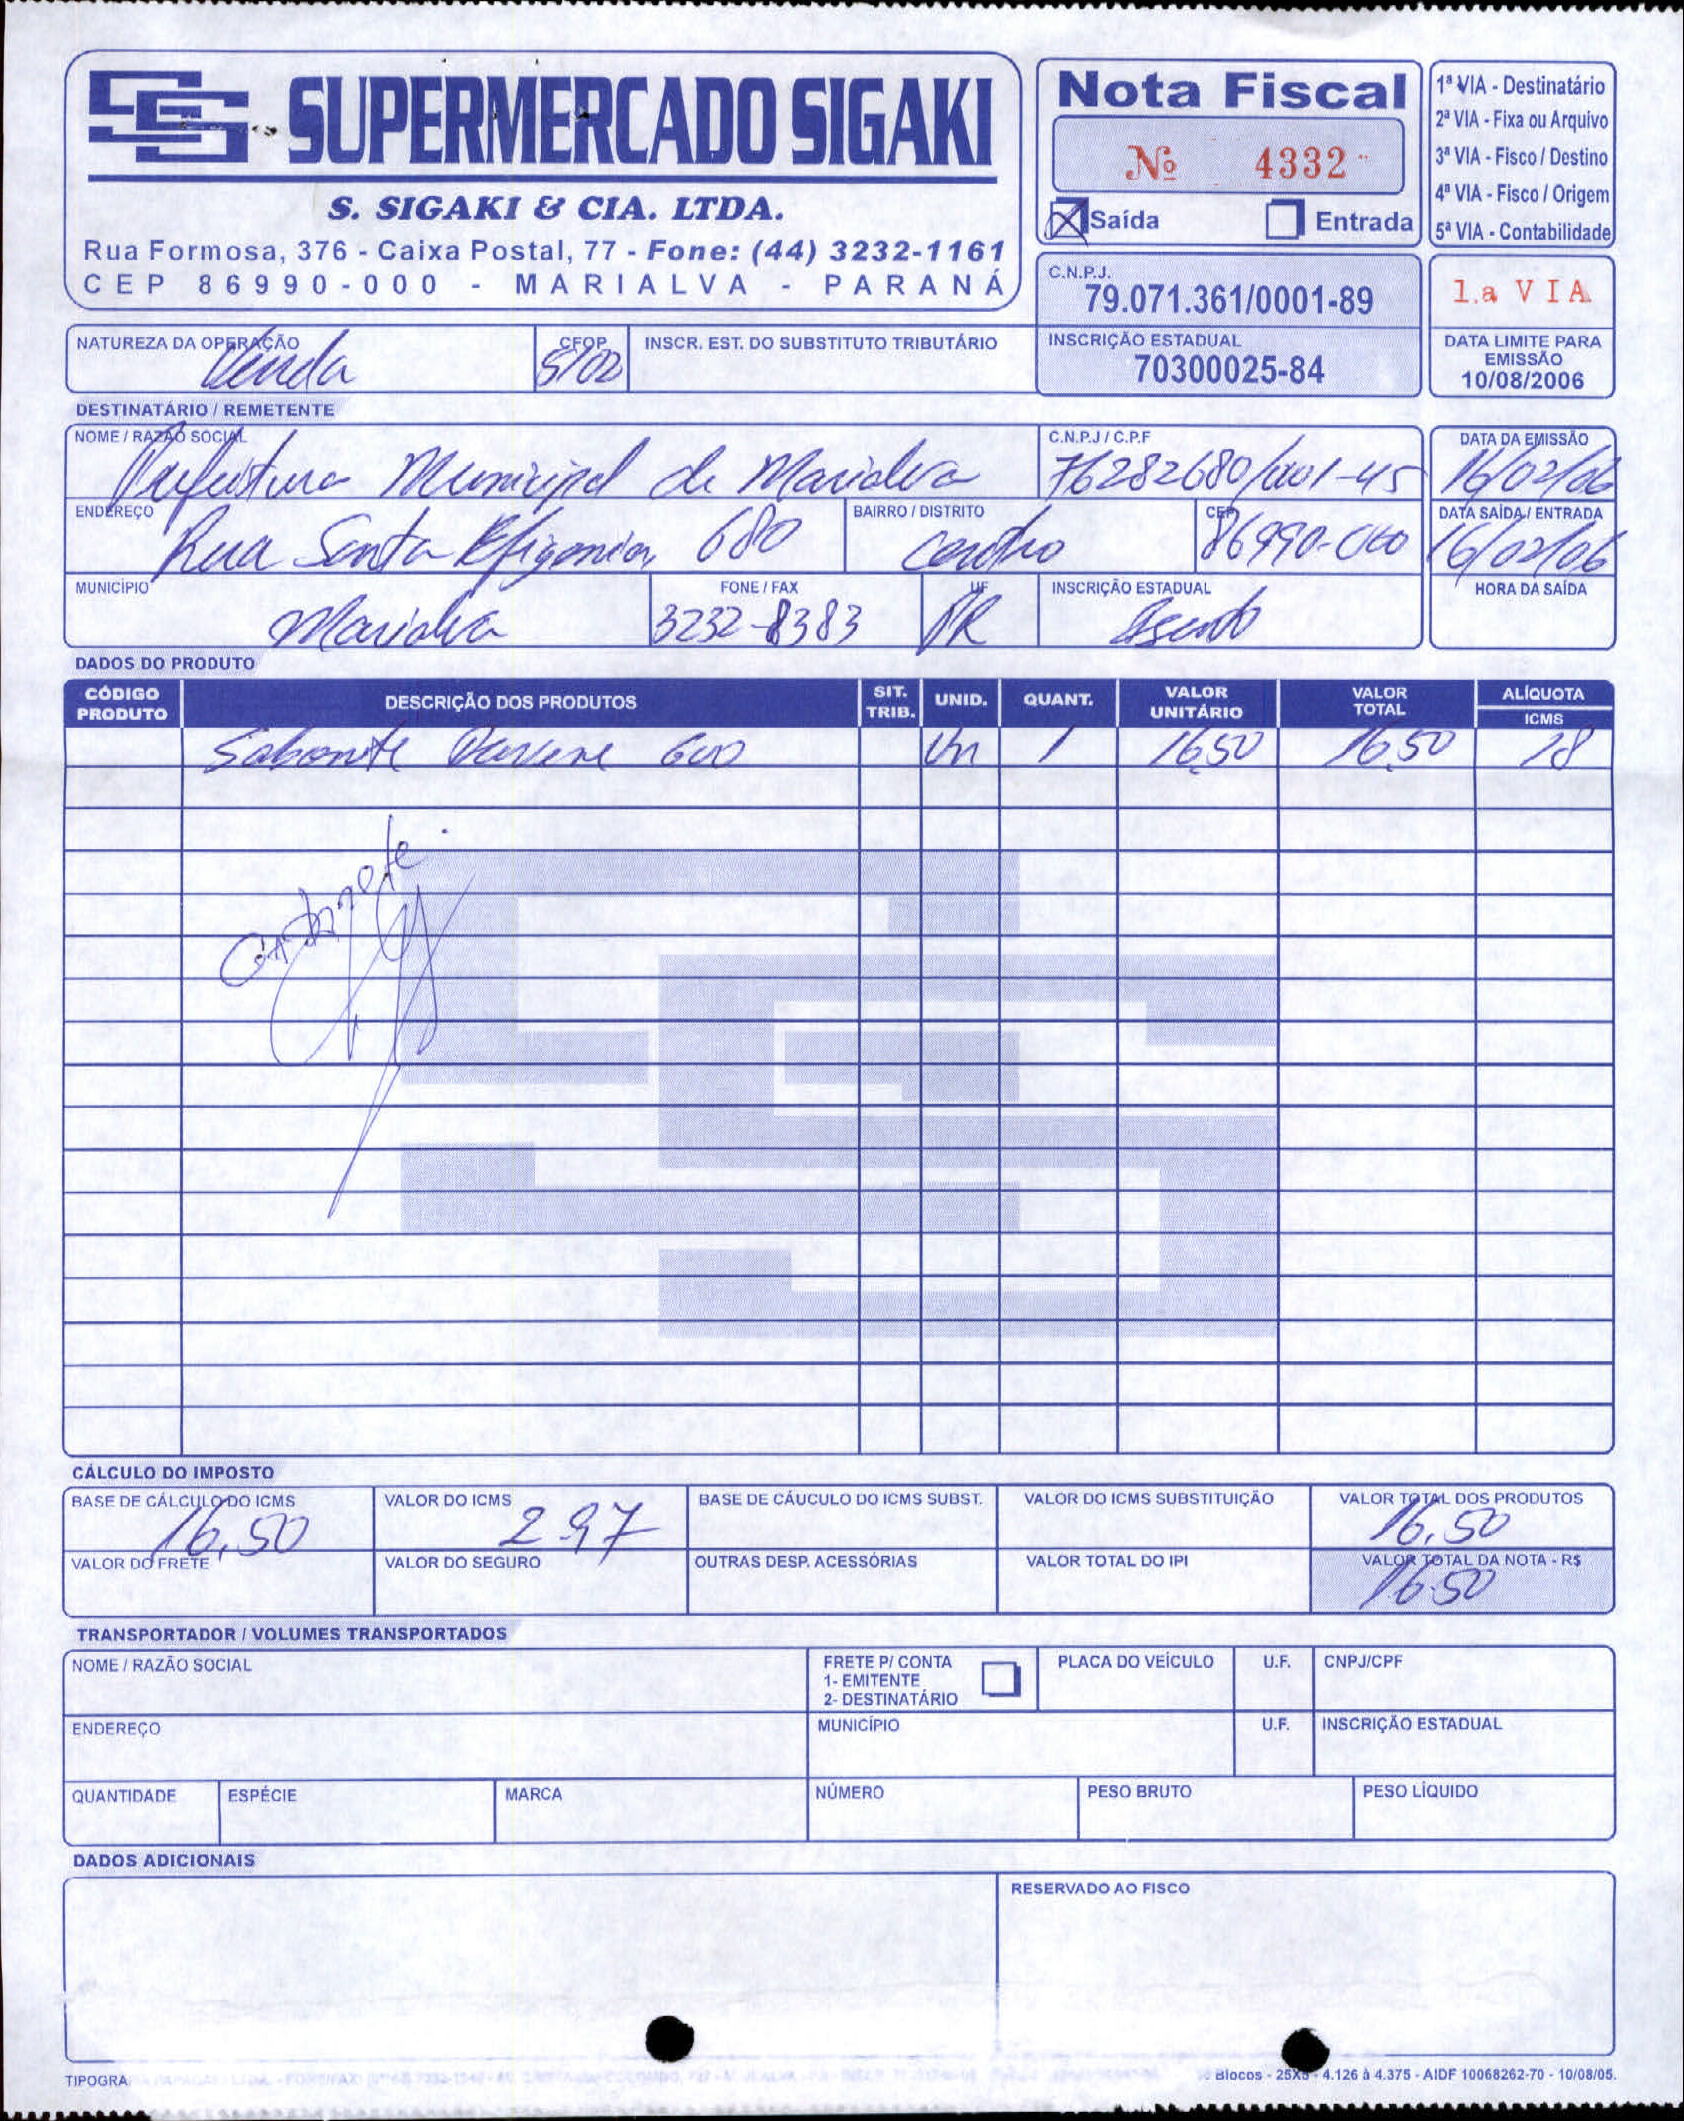 SS SUPERMERCADO SIGAKI
S. SIGAKI & CIA. LTDA.
Rua Formosa, 376 - Caixa Postal, 77 - Fone: (44) 3232-1161
CEP 86990-000 - MARIALVA - PARANÁ
Nota Fiscal
Nº 4332
X Saída Entrada
1ª VIA - Destinatário
2ª VIA - Fixa ou Arquivo
3ª VIA - Fisco / Destino
4ª VIA - Fisco / Origem
5ª VIA - Contabilidade
C.N.P.J.
79.071.361/0001-89
1.a VIA
NATUREZA DA OPERAÇÃO CFOP INSCR. EST. DO SUBSTITUTO TRIBUTÁRIO
Venda 5102
INSCRIÇÃO ESTADUAL
70300025-84
DATA LIMITE PARA
EMISSÃO
10/08/2006
DESTINATÁRIO / REMETENTE
NOME / RAZÃO SOCIAL C.N.P.J / C.P.F DATA DA EMISSÃO
Prefeitura Municipal de Marialva 76282680/001-45 16/02/06
ENDEREÇO BAIRRO / DISTRITO CEP DATA SAÍDA / ENTRADA
Rua Santa Efigenia, 680 centro 86990-000 16/02/06
MUNICÍPIO FONE / FAX UF INSCRIÇÃO ESTADUAL HORA DA SAÍDA
Marialva 3232-8383 PR Isento
DADOS DO PRODUTO
CÓDIGO PRODUTO DESCRIÇÃO DOS PRODUTOS SIT. TRIB. UNID. QUANT. VALOR UNITÁRIO VALOR TOTAL ALÍQUOTA ICMS
Sabonete Davene 600 Un 1 16,50 16,50 18
CÁLCULO DO IMPOSTO
BASE DE CÁLCULO DO ICMS VALOR DO ICMS BASE DE CÁUCULO DO ICMS SUBST. VALOR DO ICMS SUBSTITUIÇÃO VALOR TOTAL DOS PRODUTOS
16,50 2.97 16,50
VALOR DO FRETE VALOR DO SEGURO OUTRAS DESP. ACESSÓRIAS VALOR TOTAL DO IPI VALOR TOTAL DA NOTA - R$
16.50
TRANSPORTADOR / VOLUMES TRANSPORTADOS
NOME / RAZÃO SOCIAL FRETE P/ CONTA PLACA DO VEÍCULO U.F. CNPJ/CPF
1- EMITENTE
2- DESTINATÁRIO
ENDEREÇO MUNICÍPIO U.F. INSCRIÇÃO ESTADUAL
QUANTIDADE ESPÉCIE MARCA NÚMERO PESO BRUTO PESO LÍQUIDO
DADOS ADICIONAIS
RESERVADO AO FISCO
TIPOGRA Blocos - 25X5 - 4.126 à 4.375 - AIDF 10068262-70 - 10/08/05.